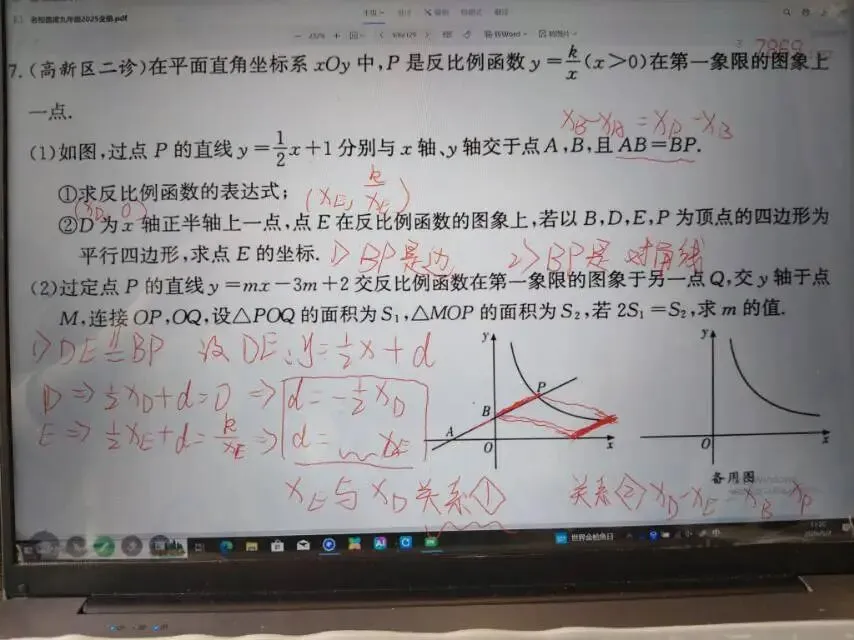 名校题库九年级2025全册.pdf
7.(高新区二诊)在平面直角坐标系 xOy 中,P 是反比例函数 y=k/x(x>0)在第一象限的图象上
一点.
x_B-x_A=x_P-x_B
(1)如图,过点 P 的直线 y=1/2x+1 分别与 x 轴、y 轴交于点 A,B,且 AB=BP.
①求反比例函数的表达式;
(x_E, k/x_E)
(x_D, 0)
②D 为 x 轴正半轴上一点,点 E 在反比例函数的图象上,若以 B,D,E,P 为顶点的四边形为
平行四边形,求点 E 的坐标.
1) BP是边 2) BP是对角线
(2)过定点 P 的直线 y=mx-3m+2 交反比例函数在第一象限的图象于另一点 Q,交 y 轴于点
M,连接 OP,OQ,设△POQ 的面积为 S₁,△MOP 的面积为 S₂,若 2S₁=S₂,求 m 的值.
1) DE∥=BP 设 DE:y=1/2x+d
D⇒1/2x_D+d=0⇒d=-1/2x_D
E⇒1/2x_E+d=k/x_E⇒d=﹏x_E
x_E与x_D关系①
关系② x_D-x_E x_B x_P
y
P
B
A
O
x
y
O
x
备用图
世界金鲳鱼日